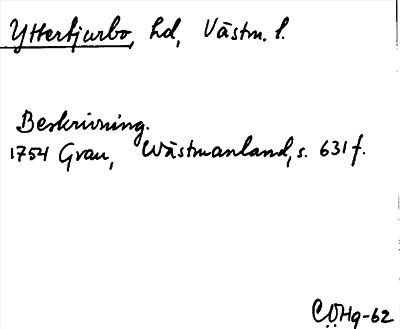 Yttertjurbo, hd, Västm. l.
Beskrivning.
1754 Grau, Wästmanland, s. 631 f.
CÖHg-62